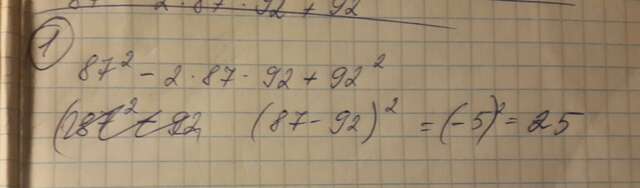 2 · 87 · 92 + 92
1
87² - 2 · 87 · 92 + 92²
(87 - 92)² = (-5)² = 25